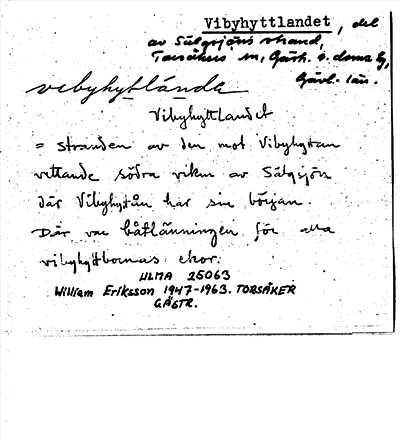 Vibyhyttlandet, del
av Sälgsjöns strand,
Torsåkers sn, Gästr. ö. domsaga,
Gävl. län.
vibyhyttlánda
Vibyhyttlandet
= stranden av den mot Vibyhyttan
vettande södra viken av Sälgsjön
där Vibyhyttån har sin början.
Där var båtlänningen för alla
vibyhyttbornas ekor.
ULMA 25063
William Eriksson 1947-1963. TORSÅKER
GÄSTR.